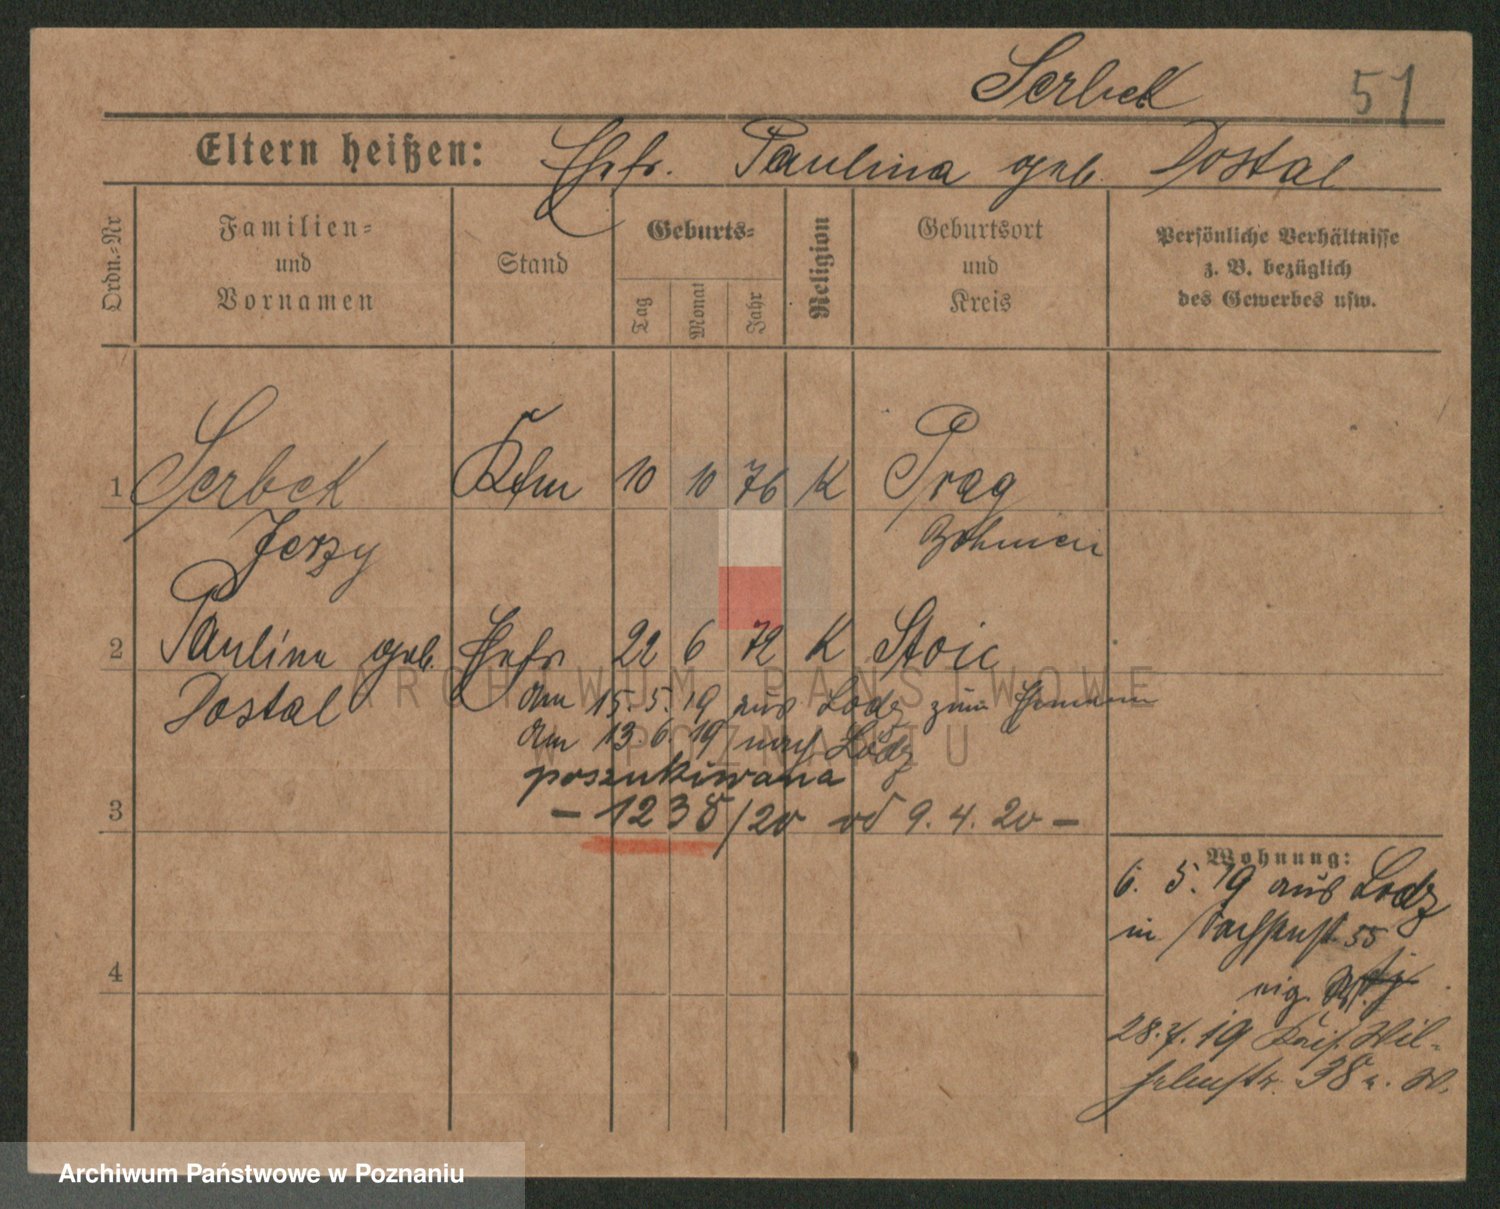 Serbek 51
Eltern heißen: Ehefr. Paulina geb. Dostal
Ordn.-Nr
Familien-
und
Vornamen
Stand
Geburts-
Tag
Monat
Jahr
Religion
Geburtsort
und
Kreis
Persönliche Verhältnisse
z. B. bezüglich
des Gewerbes usw.
1 Serbek Kfm 10 10 76 K Prag
Jerzy Böhmen
2 Paulina geb. Ehefr 22 6 72 K
Dostal
am 15.5.19 aus Lodz zum Ehemann
am 13.6.19 nach Lodz
poszukiwana
3 - 1238/20 od 9.4.20 -
Wohnung:
6. 5. 19 aus Lodz
in 55
4
eig.
28. 19 Kais. Wil-
helmstr. 38 a. W.
ARCHIWUM PAŃSTWOWE
W POZNANIU
Archiwum Państwowe w Poznaniu